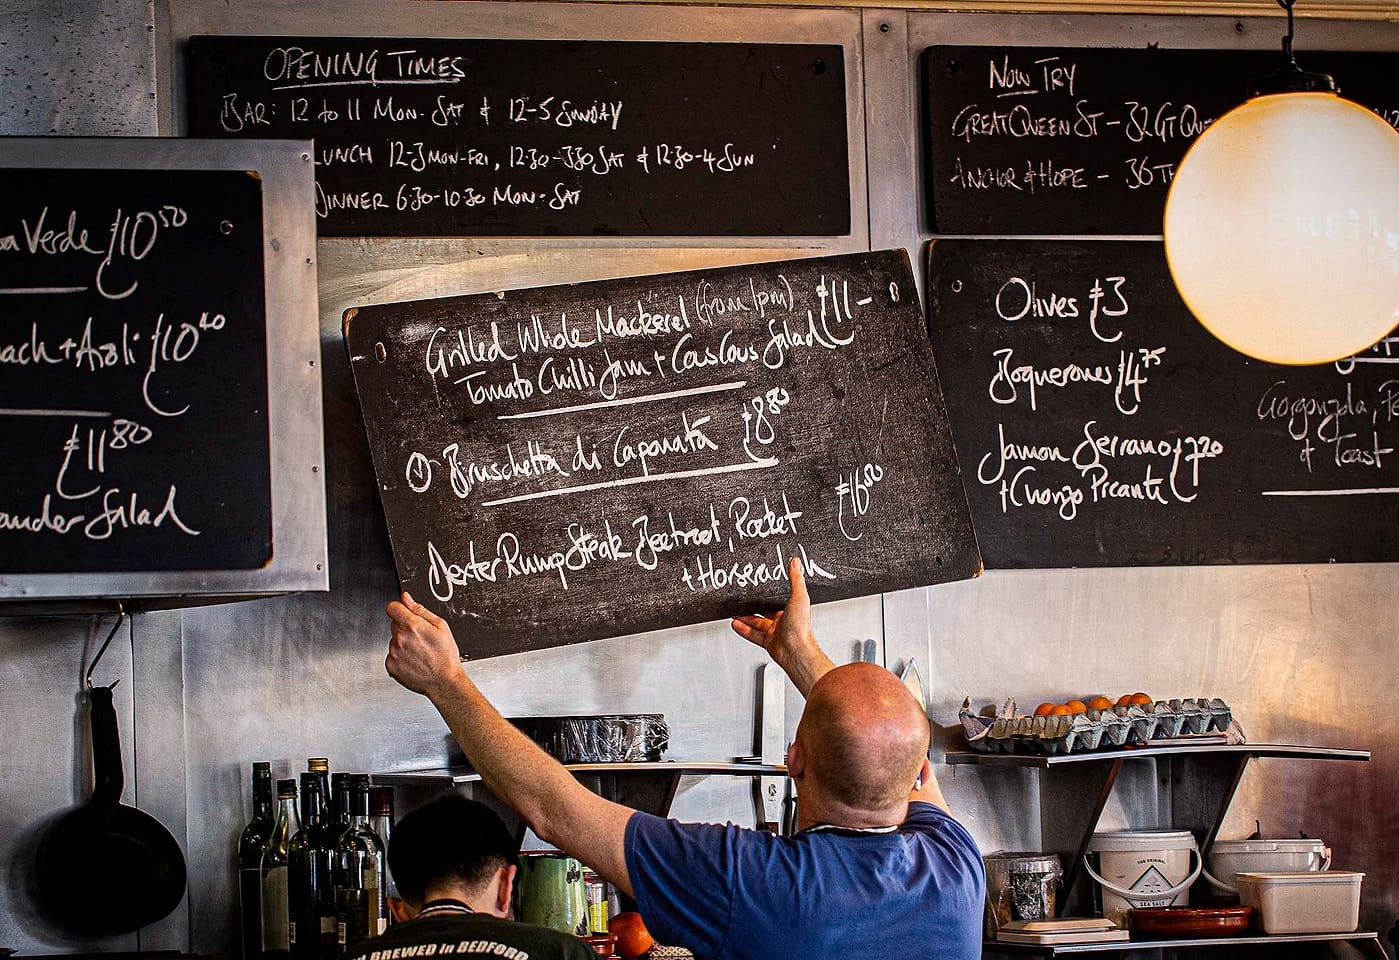 OPENING TIMES
BAR: 12 to 11 Mon-Sat & 12-5 Sunday
LUNCH 12-3 MON-FRI, 12:30-3:30 SAT & 12:30-4 SUN
DINNER 6:30-10:30 MON-SAT
NOW TRY
GREAT QUEEN ST - 32 GT QUE
ANCHOR & HOPE - 36 TH
Verde £10 50
+ Aioli £10 40
£11 80
Salad
Grilled Whole Mackerel (from 1pm) £11-
Tomato Chilli Jam + CousCous Salad
① Bruschetta di Caponata £8 80
Dexter Rump Steak Beetroot, Rocket £16 80
+ Horseradish
Olives £3
Boquerones £4 75
Jamon Serrano £7 20
+ Chorizo Picante
Gorgonzola,
& Toast
BREWED in BEDFORD
THE ORIGINAL
SEA SALT